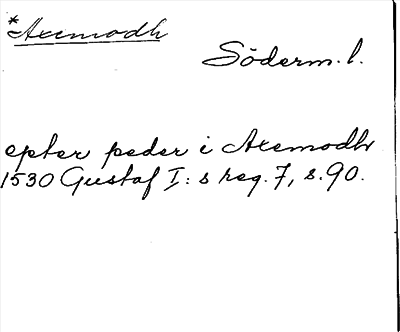 *Axemodh
Söderm. l.
epter peder i Axemodhr
1530 Gustaf I:s reg. 7, s. 90.